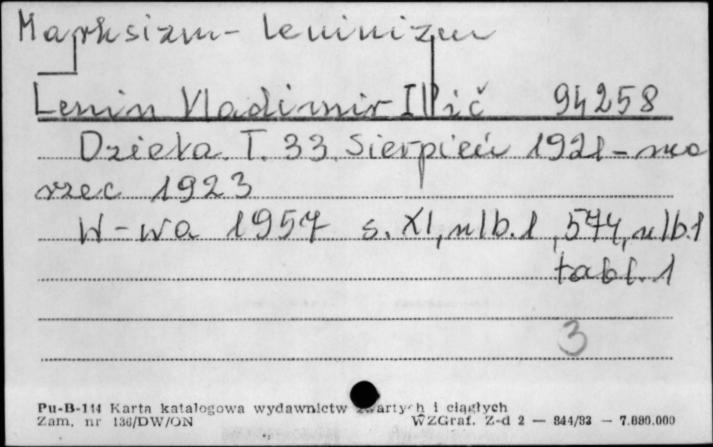 Marksizm-leninizm
Lenin Vladimir Il'ič 94258
Dzieła. T. 33. Sierpień 1921 - ma
rzec 1923
W-wa 1957 s. XI, nlb. 1, 574, nlb. 1
tabl. 1
3
Pu-B-114 Karta katalogowa wydawnictw zwartych i ciągłych
Zam. nr 136/DW/ON WZGraf. Z-d 2 — 844/83 — 7.880.000